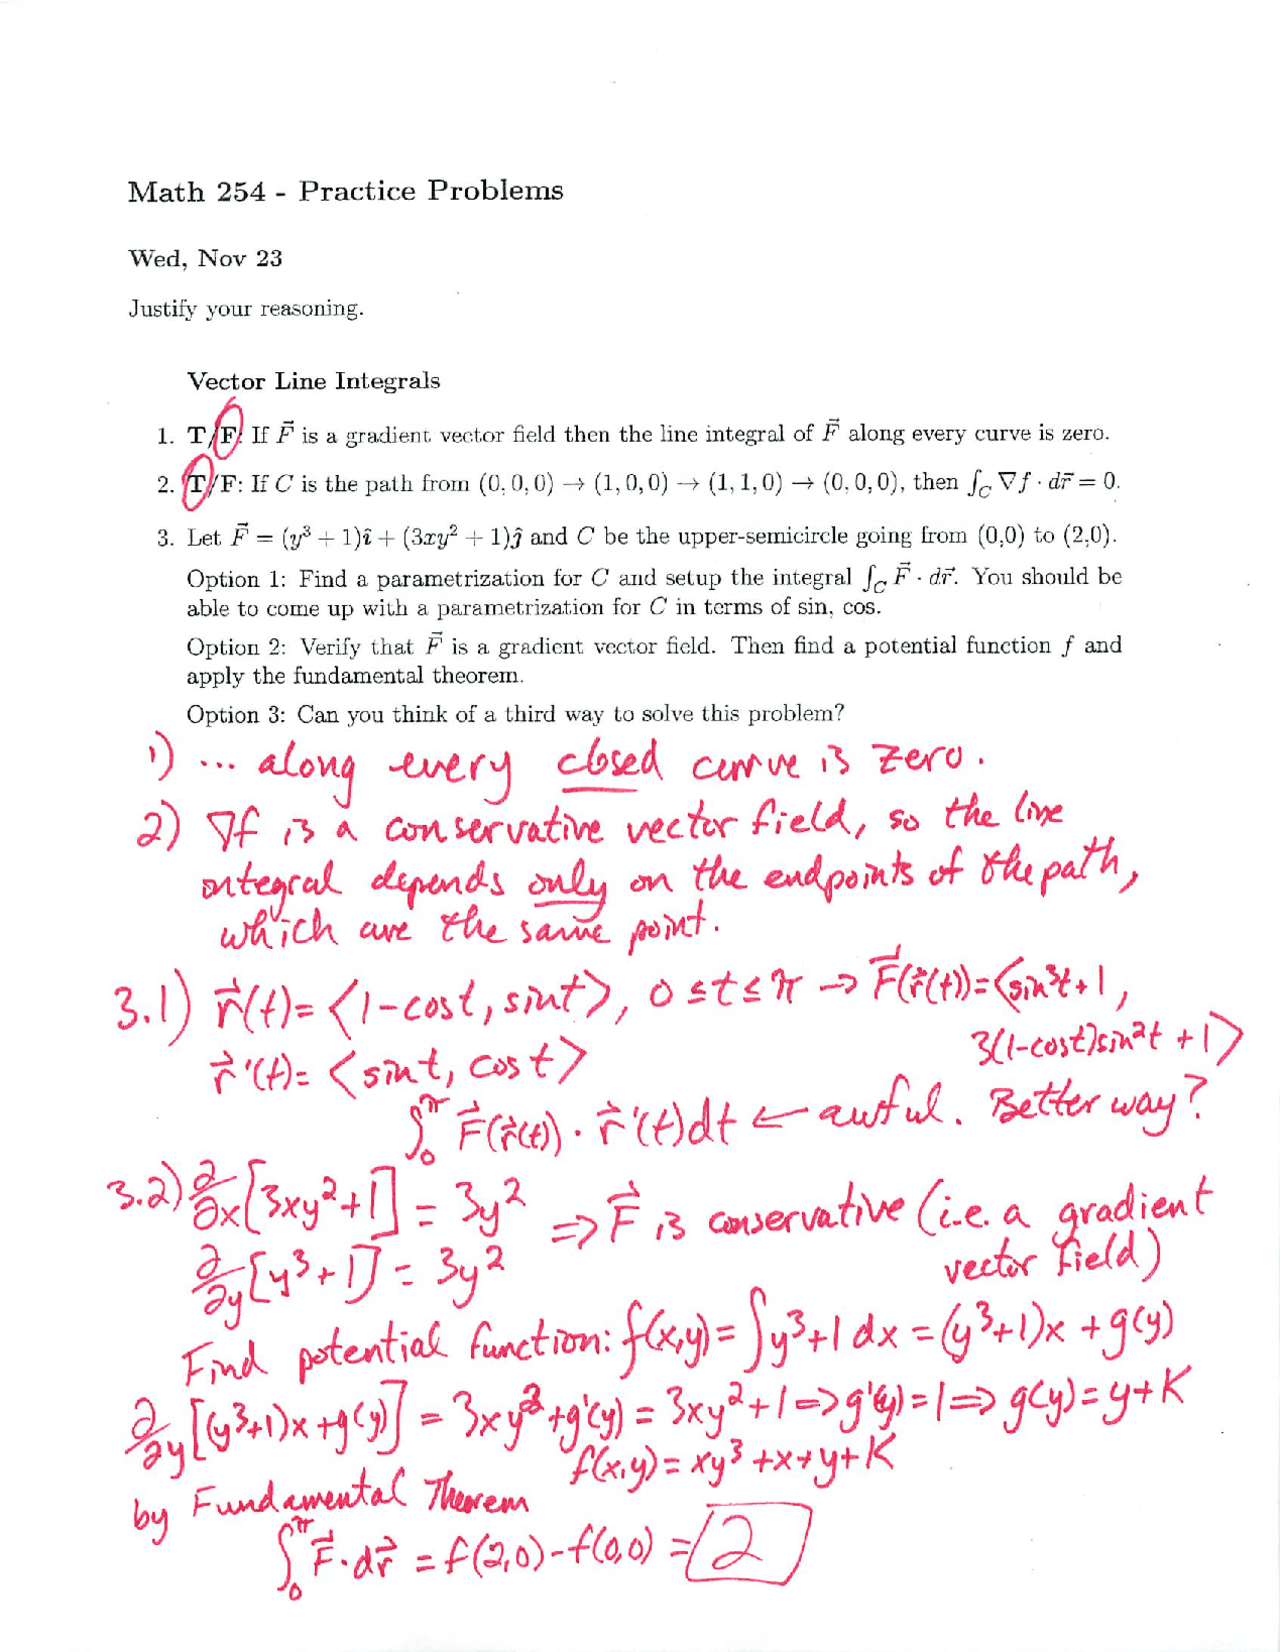 Math 254 - Practice Problems
Wed, Nov 23
Justify your reasoning.
Vector Line Integrals
1. T/F: If F⃗ is a gradient vector field then the line integral of F⃗ along every curve is zero.
2. T/F: If C is the path from (0,0,0) → (1,0,0) → (1,1,0) → (0,0,0), then ∫_C ∇f · dr⃗ = 0.
3. Let F⃗ = (y³ + 1)î + (3xy² + 1)ĵ and C be the upper-semicircle going from (0,0) to (2,0).
Option 1: Find a parametrization for C and setup the integral ∫_C F⃗ · dr⃗. You should be
able to come up with a parametrization for C in terms of sin, cos.
Option 2: Verify that F⃗ is a gradient vector field. Then find a potential function f and
apply the fundamental theorem.
Option 3: Can you think of a third way to solve this problem?
1) ... along every closed curve is zero.
2) ∇f is a conservative vector field, so the line
integral depends only on the endpoints of the path,
which are the same point.
3.1) r⃗(t) = ⟨1-cost, sint⟩, 0 ≤ t ≤ π → F⃗(r⃗(t)) = ⟨sin³t+1,
3(1-cost)sin²t +1⟩
r⃗'(t) = ⟨sint, cost⟩
∫₀^π F⃗(r⃗(t)) · r⃗'(t)dt ← awful. Better way?
3.2) ∂/∂x[3xy²+1] = 3y² ⇒ F⃗ is conservative (i.e. a gradient
vector field)
∂/∂y[y³+1] = 3y²
Find potential function: f(x,y) = ∫y³+1 dx = (y³+1)x + g(y)
∂/∂y[(y³+1)x+g(y)] = 3xy²+g'(y) = 3xy²+1 ⇒ g'(y) = 1 ⇒ g(y) = y+K
f(x,y) = xy³+x+y+K
by Fundamental Theorem
∫₀^π F⃗·dr⃗ = f(2,0)-f(0,0) = 2